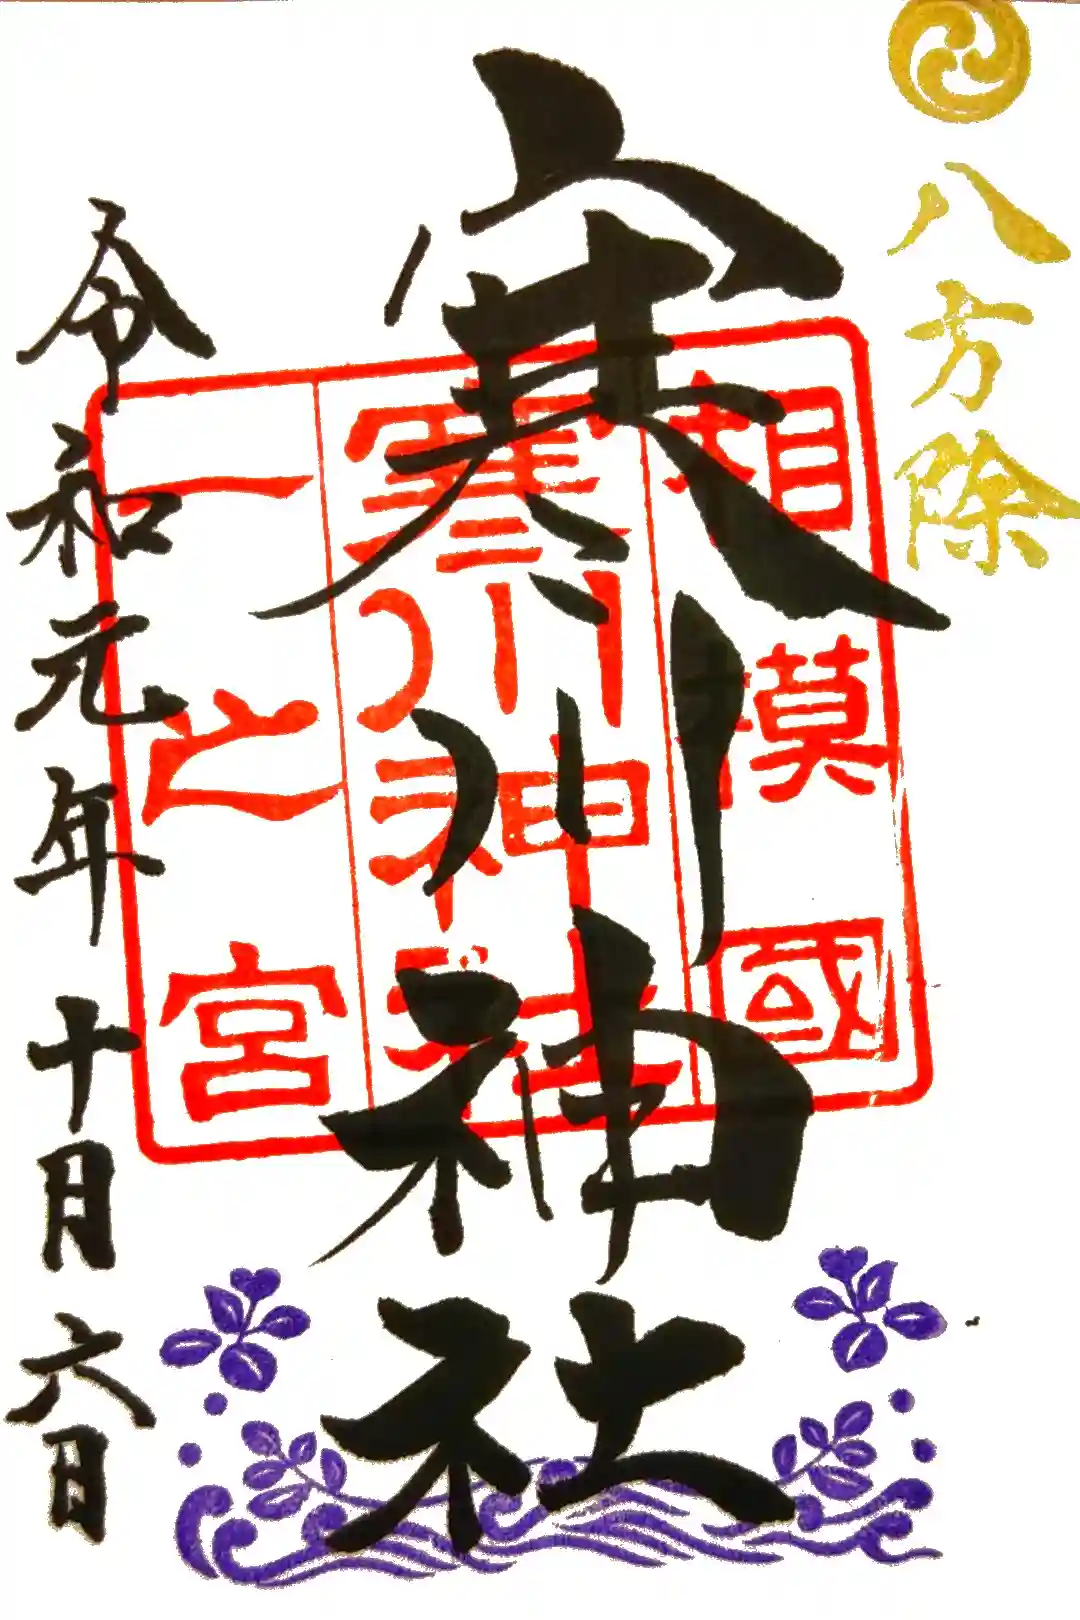 八方除
寒川神社
相模國
寒川神社
一之宮
令和元年十月六日